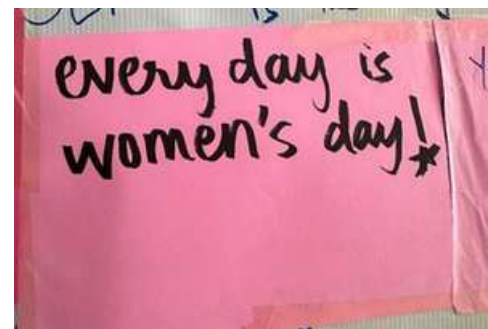 is
every day is
women's day!